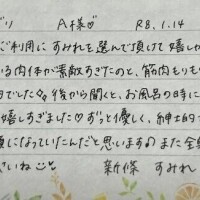 り A様♡ R8.1.14
ご利用にすみれを選んで頂けて嬉しか
いる肉体が素敵すぎたのと、筋肉もりも
でした 後から聞くと、お風呂の時に
嬉しすぎました♡ずっと優しく、紳士的
になっていたんだと思います またお
さいね 新條 すみれ